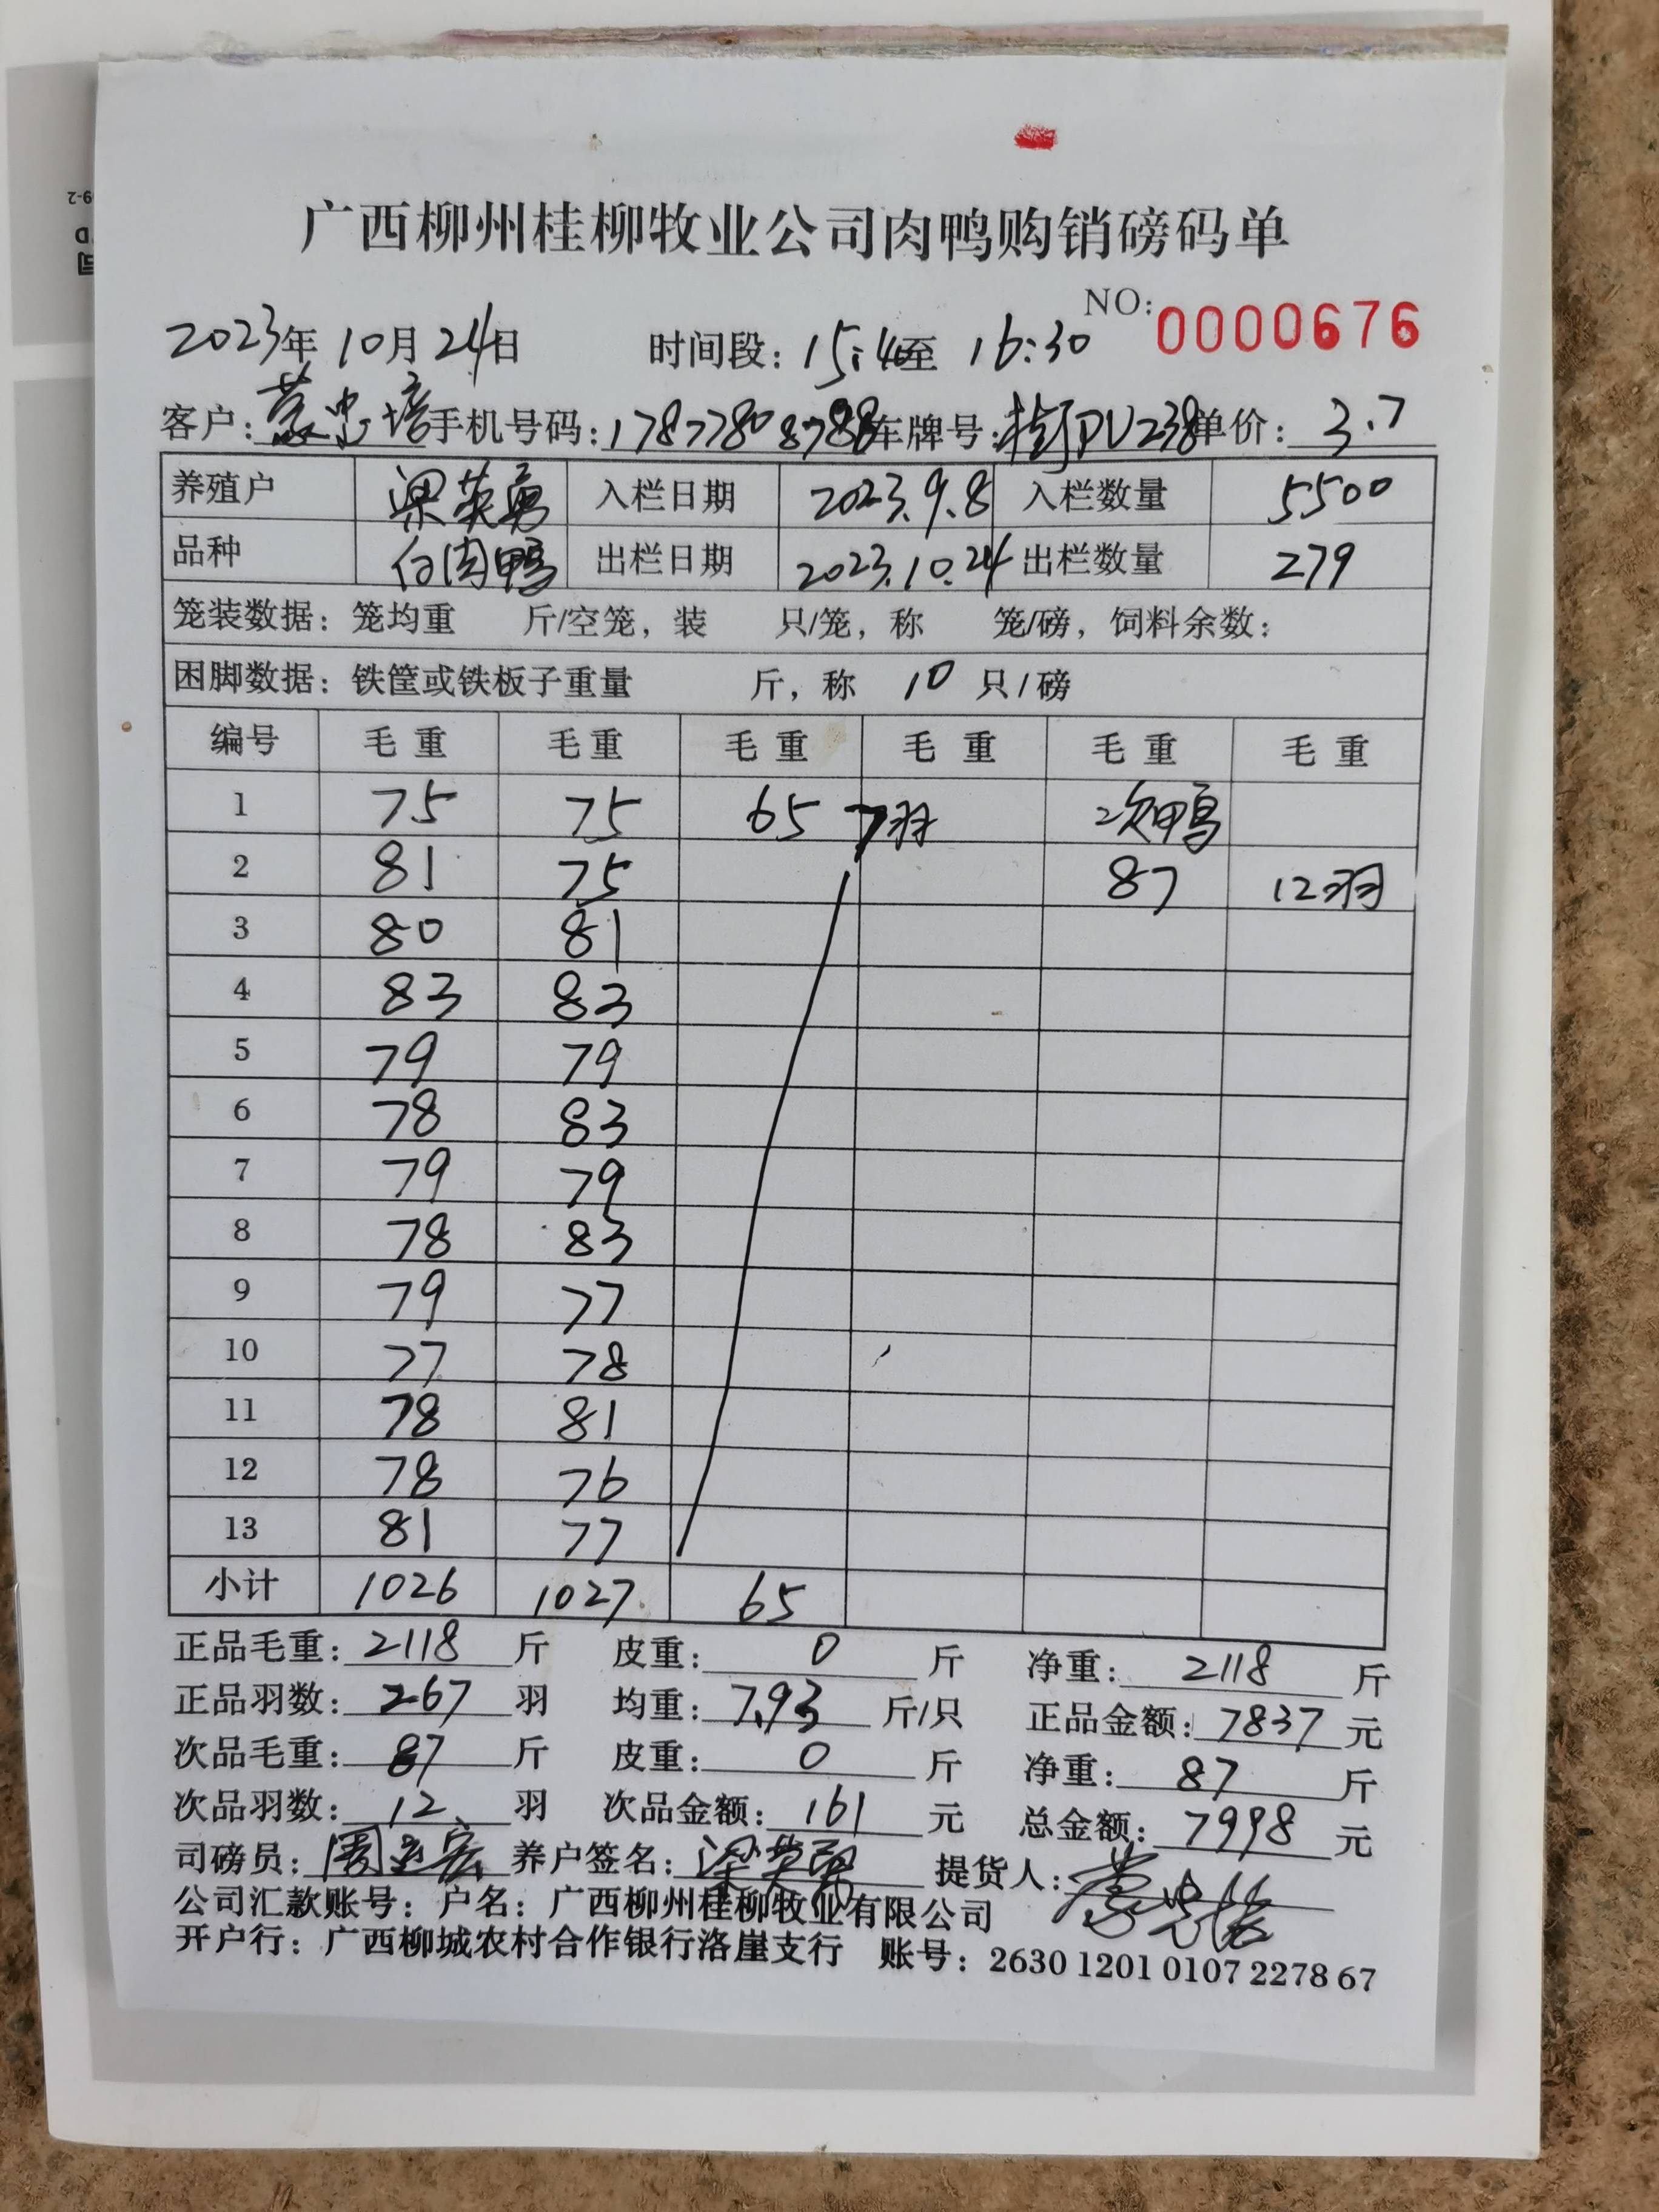 广西柳州桂柳牧业公司肉鸭购销磅码单
NO: 0000676
2023年10月24日 时间段: 15:4至 16:30
客户: 蒙忠培 手机号码: 车牌号: 单价: 3.7
养殖户 梁英勇 入栏日期 2023.9.8 入栏数量 5500
品种 白肉鸭 出栏日期 2023.10.24 出栏数量 279
笼装数据: 笼均重 斤/空笼, 装 只/笼, 称 笼/磅, 饲料余数:
困脚数据: 铁筐或铁板子重量 斤, 称 10 只/磅
编号 毛重 毛重 毛重 毛重 毛重 毛重
1 75 75 65 7羽 次鸭
2 81 75 87 12羽
3 80 81
4 83 83
5 79 79
6 78 83
7 79 79
8 78 83
9 79 77
10 77 78
11 78 81
12 78 76
13 81 77
小计 1026 1027 65
正品毛重: 2118 斤 皮重: 0 斤 净重: 2118 斤
正品羽数: 267 羽 均重: 7.93 斤/只 正品金额: 7837 元
次品毛重: 87 斤 皮重: 0 斤 净重: 87 斤
次品羽数: 12 羽 次品金额: 161 元 总金额: 7998 元
司磅员: 养户签名: 梁英勇 提货人: 蒙忠培
公司汇款账号: 户名: 广西柳州桂柳牧业有限公司
开户行: 广西柳城农村合作银行洛崖支行 账号: 2630 1201 0107 2278 67